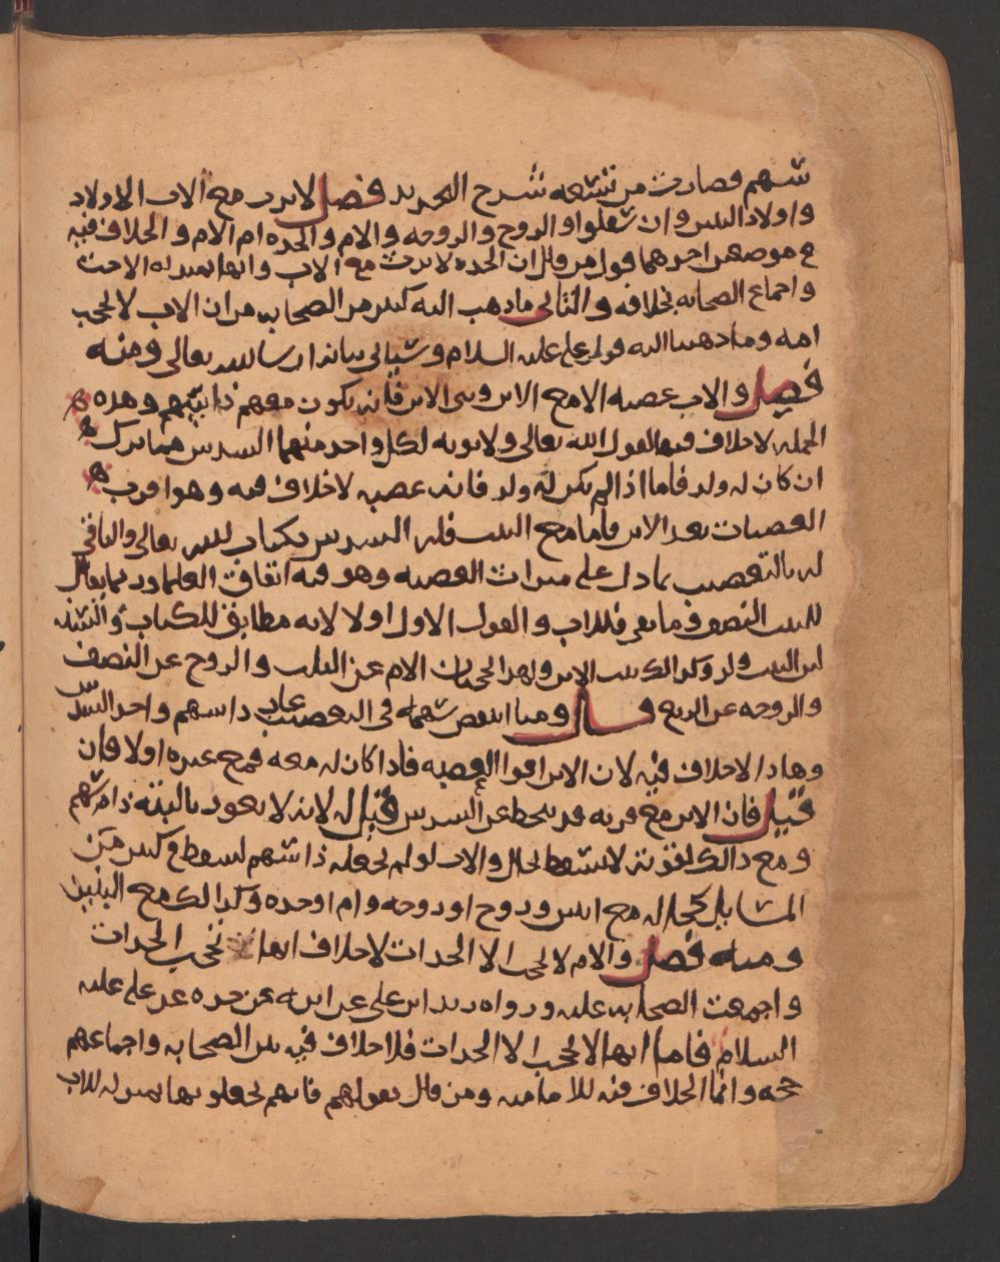 سهم فصارت من تسعه شرح التحريد فصل لا يرث مع الاب الا الاولاد
واولاد البنين وان سفلوا والزوج والزوجه والام والجده ام الام والخلاف فيه
في موضعين احدهما قول من قال ان الجده لا ترث مع الاب وانها بمنزله الاخت
واجماع الصحابه بخلافه والثاني ما ذهب اليه كثير من الصحابه من ان الاب لا يحجب
امه وما ذهبنا اليه قول علي عليه السلام وسياتي بيانه ان شا الله تعالى ومنه
فصل والاب عصبه الا مع الابن وبني الابن فانه يكون معهم ذا سهم وهذه
الجمله لا خلاف فيها لقول الله تعالى ولابويه لكل واحد منهما السدس مما ترك
ان كان له ولد فاما اذا لم يكن له ولد فانه عصبه لا خلاف فيه وهو اقرب
العصبات بعد الابن فاما مع البنت فله السدس بكتاب الله تعالى والباقي
له بالتعصيب بما دل على ميراث العصبه وهو فيه اتفاق العلما وربما يقال
للبنت النصف وما بقي فللاب والقول الاول اولا لانه مطابق للكتاب والسنه
لان البنت ولد وكذلك بنت الابن ولهذا يحجبان الام عن الثلث والزوج عن النصف
والزوجه عن الربع قال وهنا انتقص سهمه في التعصيب عاد ذا سهم واخذ السدس
وهاذا لا خلاف فيه لان الابن اقوا العصبه فاذا كان له معه فمع غيره اولا فان
قيل فان الابن مع قربه قد ينحط عن السدس قيل له لانه لا يعود بالبته ذا سهم
ومع ذالك لقوته لا يسقط بحال والاب لو لم يجعله ذا سهم لسقط في كثير من
المسايل كحاله مع ابنين وزوج او زوجه وام او جده وكذالك مع البنين
ومنه فصل والام لا تحجب الا الجدات لا خلاف انها تحجب الجدات
واجمعت الصحابه عليه ورواه زيد ابن علي عن ابيه عن جده عن علي عليه
السلام فاما انها لا تحجب الا الجدات فلا خلاف فيه بين الصحابه واجماعهم
حجه وانما الخلاف فيه للاماميه ومن قال بقولهم فانهم يجعلونها بمنزله للاب